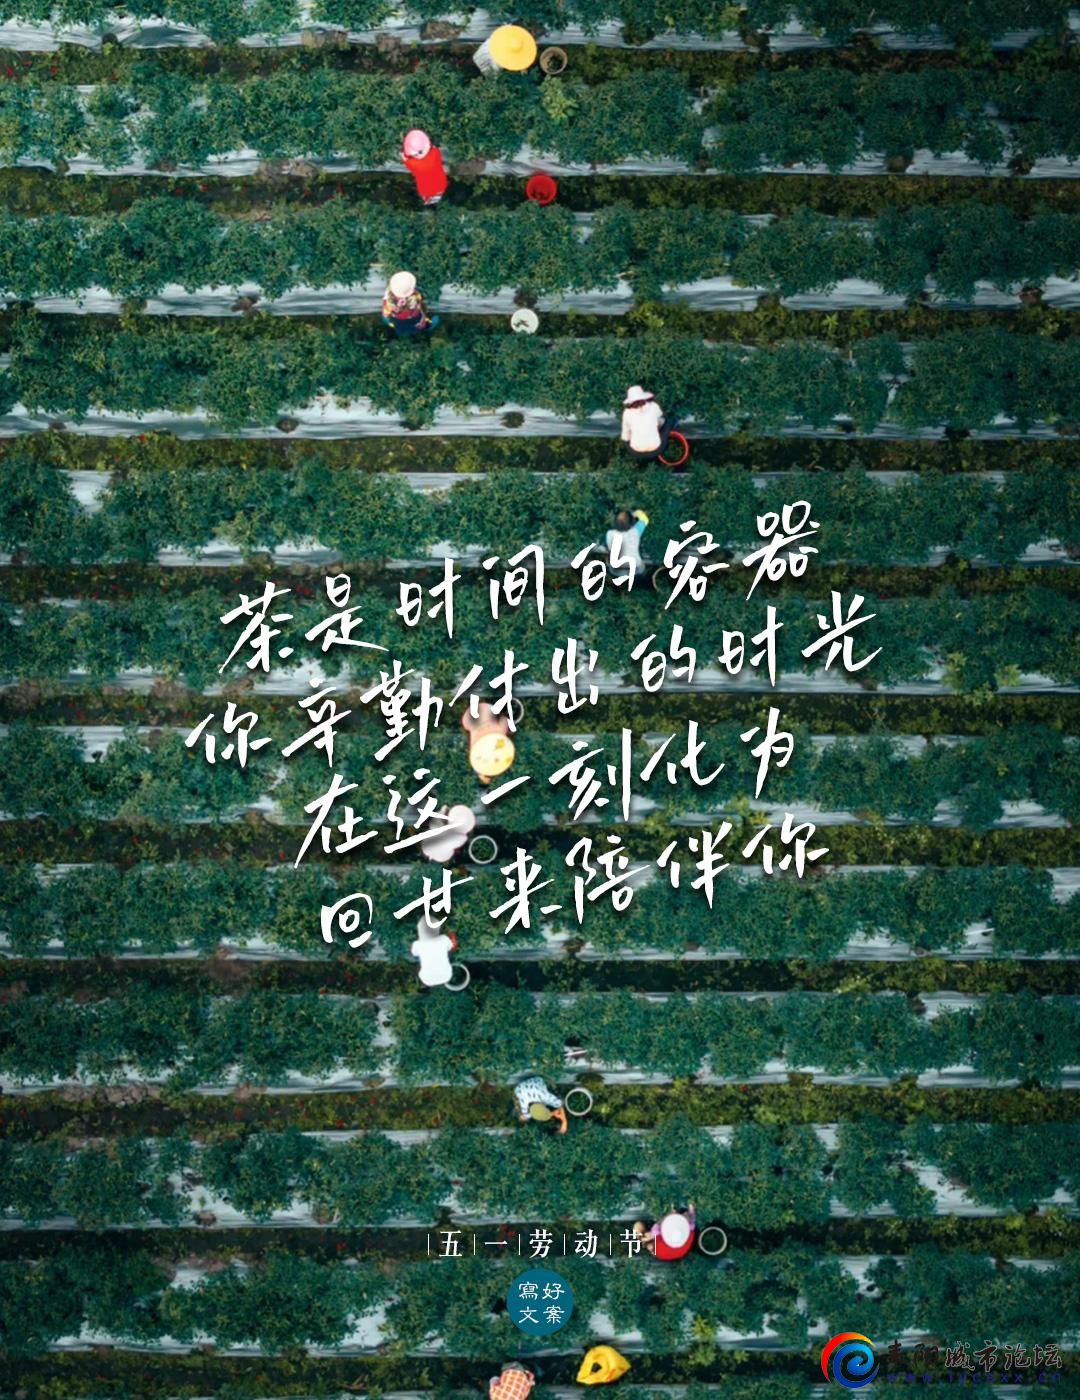 茶是时间的容器
你辛勤付出的时光
在这一刻化为
回甘来陪伴你
五一劳动节
寫好
文案
耒阳城市论坛